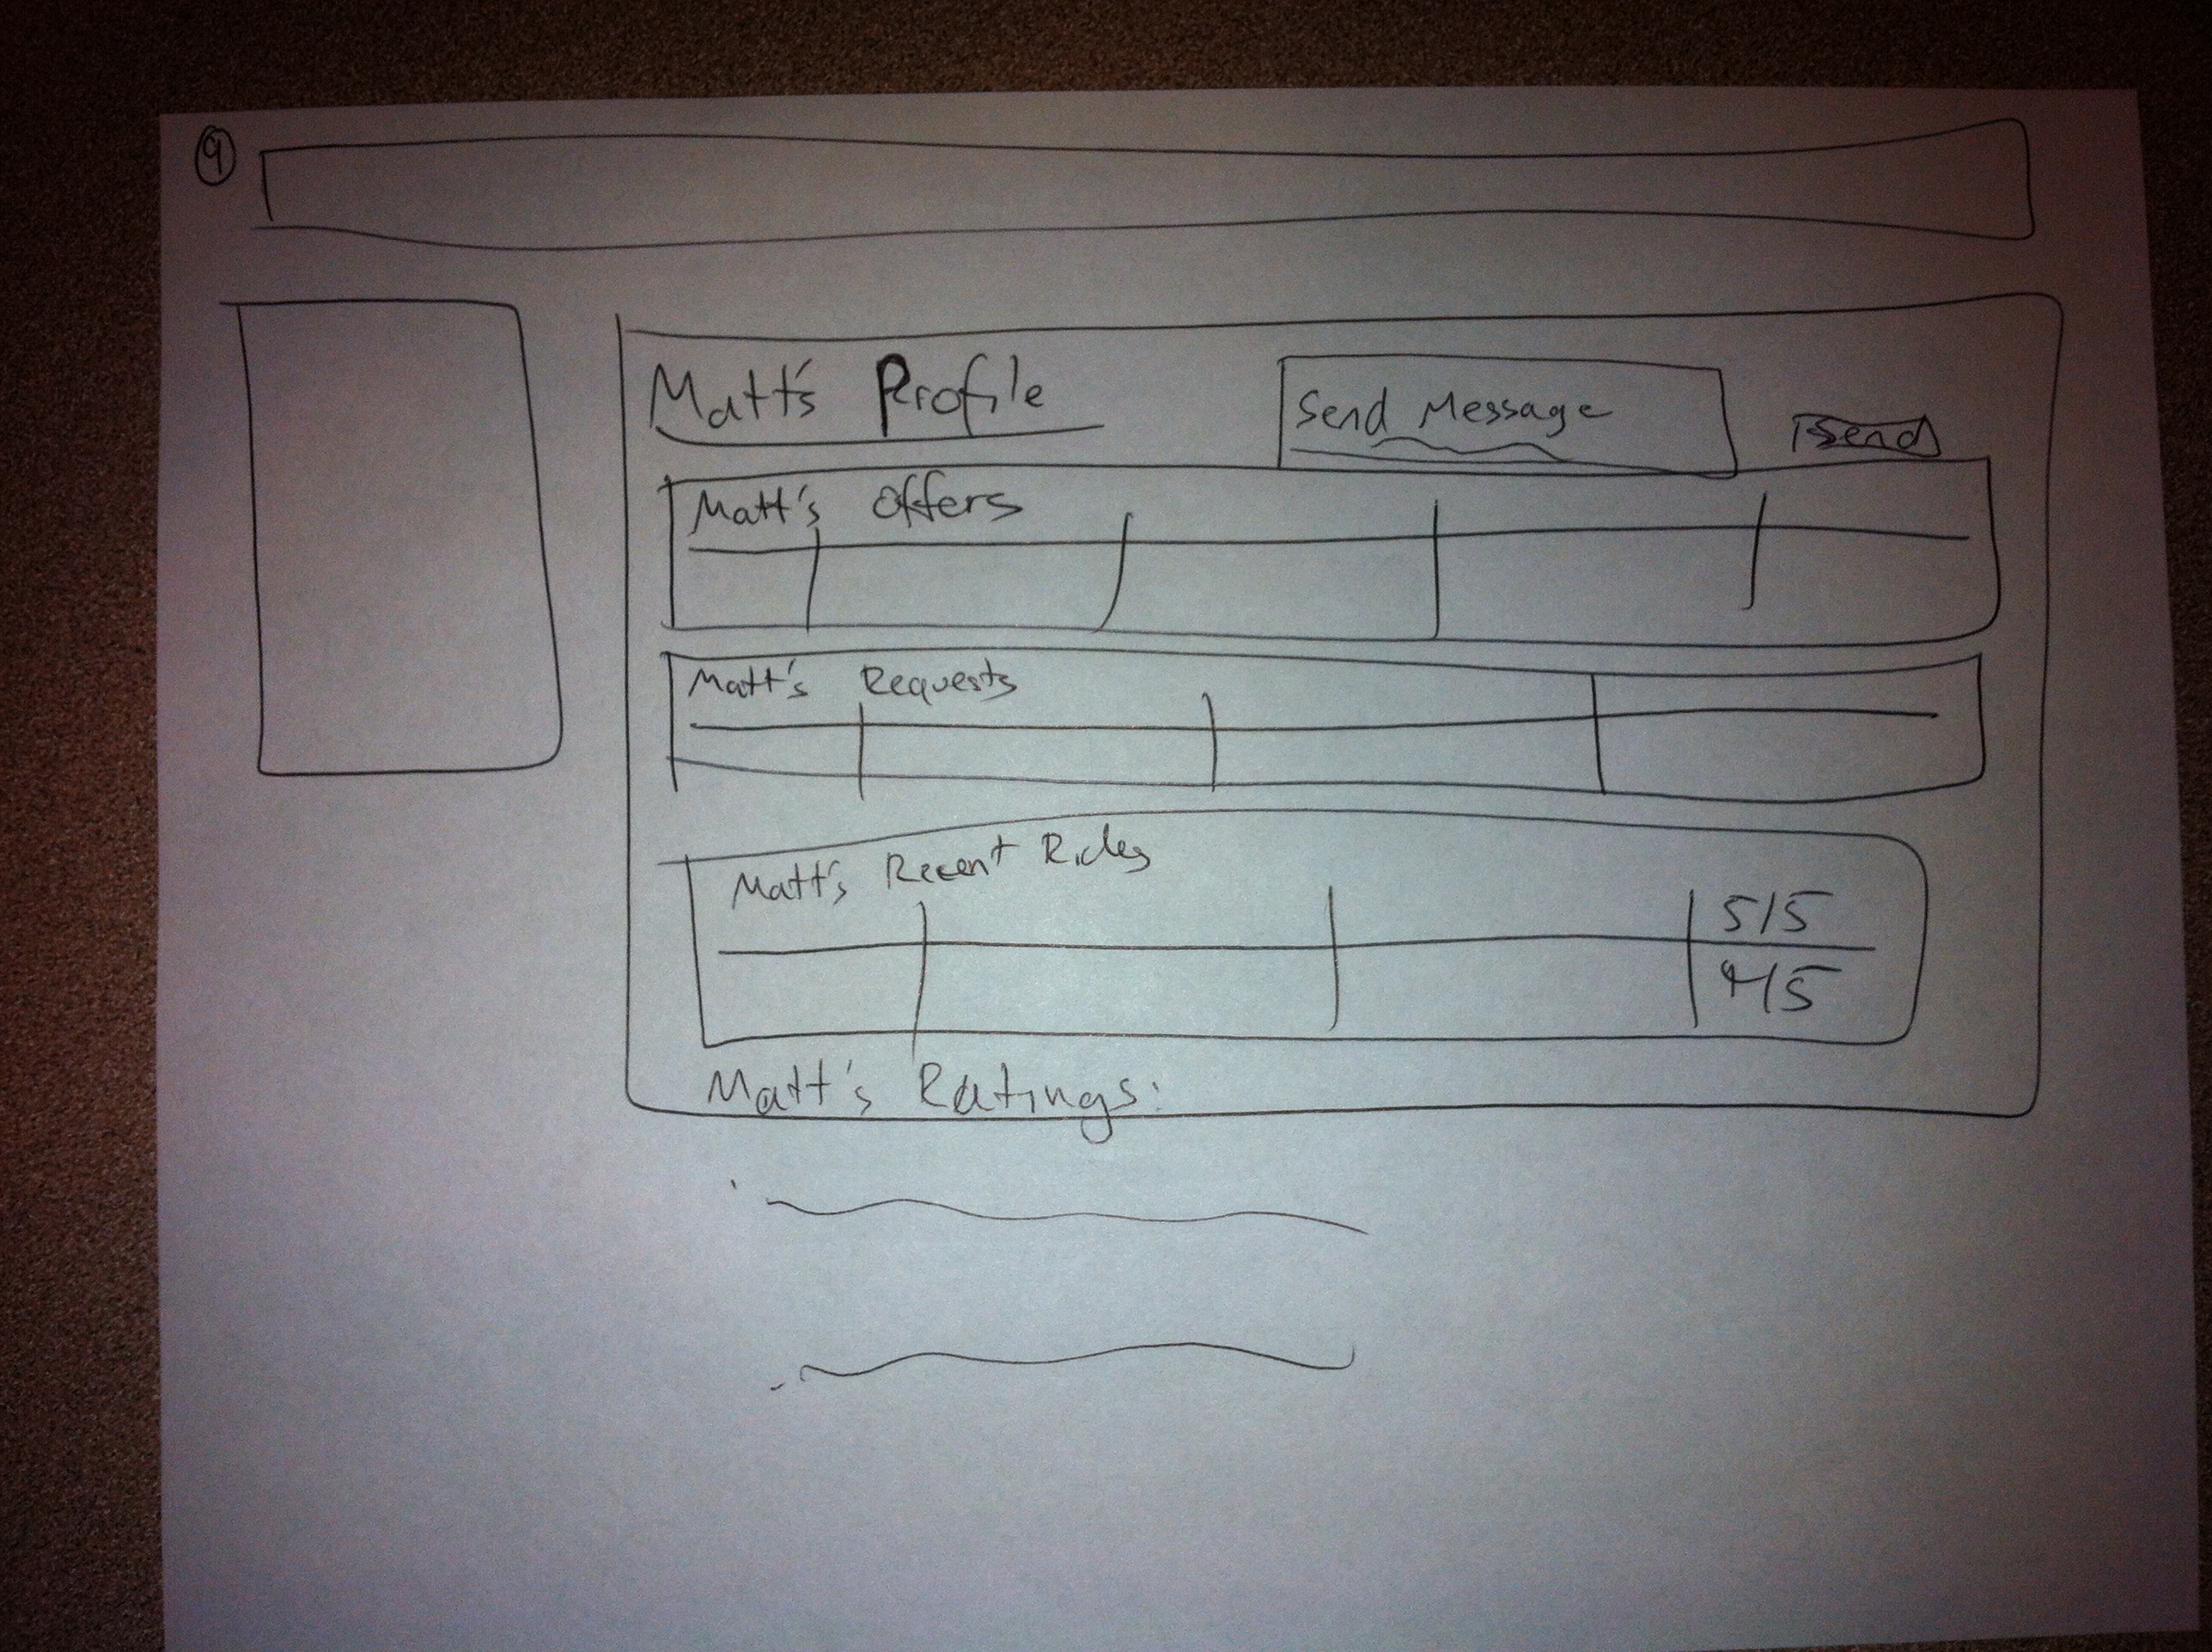 9
Matt's Profile
Send Message
Send
Matt's Offers
Matt's Requests
Matt's Recent Rides
5/5
4/5
Matt's Ratings: